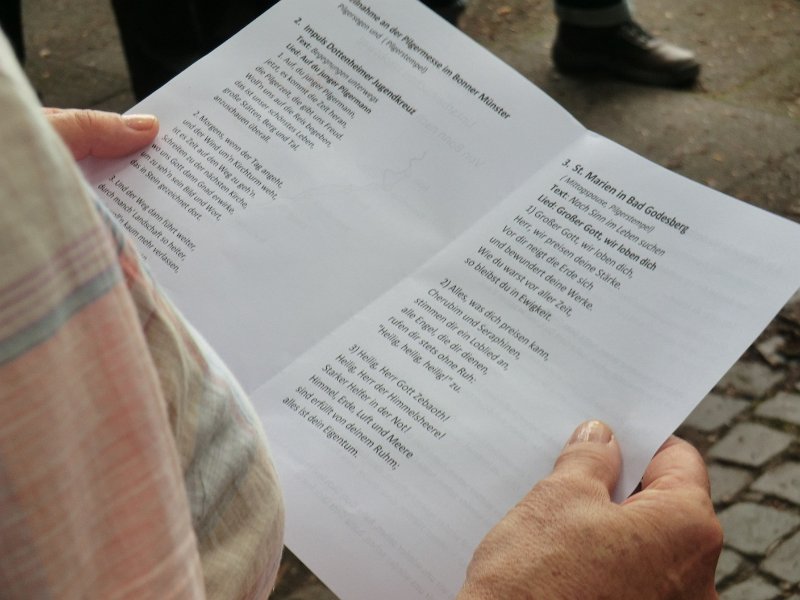 eilnahme an der Pilgermesse im Bonner Münster
Pilgersegen und ( Pilgerstempel)
2. Impuls Dottenheimer Jugendkreuz
Text: Begegnungen unterwegs
Lied: Auf du junger Pilgermann
1. Auf du junger Pilgermann,
jetzt es kommt die Zeit heran,
die Pilgerzeit, die gibt uns Freud.
Woll'n uns auf die Reis begeben,
das ist unser schönstes Leben,
große Stätten, Berg und Tal,
anzuschauen überall.
2. Morgens, wenn der Tag angeht,
und der Wind um'n Kirchturm weht,
ist es Zeit auf den Weg zu geh'n
Schreiten zu der nächsten Kirche,
wo uns Gott dann Gnad erwirke,
um zu seh'n sein Bild und Wort,
das in Stein gezeichnet dort.
3. Und der Weg dann führt weiter,
durch manch' Landschaft so heiter,
kaum mehr verlassen,
3. St. Marien in Bad Godesberg
( Mittagspause, Pilgerstempel)
Text: Nach Sinn im Leben suchen
Lied: Großer Gott, wir loben dich
1) Großer Gott, wir loben dich.
Herr, wir preisen deine Stärke.
Vor dir neigt die Erde sich
und bewundert deine Werke.
Wie du warst vor aller Zeit,
so bleibst du in Ewigkeit.
2) Alles, was dich preisen kann,
Cherubim und Seraphinen,
stimmen dir ein Loblied an,
alle Engel, die dir dienen,
rufen dir stets ohne Ruh:
"Heilig, heilig, heilig!" zu.
3) Heilig, Herr Gott Zebaoth!
Heilig, Herr der Himmelsheere!
Starker Helfer in der Not!
Himmel, Erde, Luft und Meere
sind erfüllt von deinem Ruhm;
alles ist dein Eigentum.